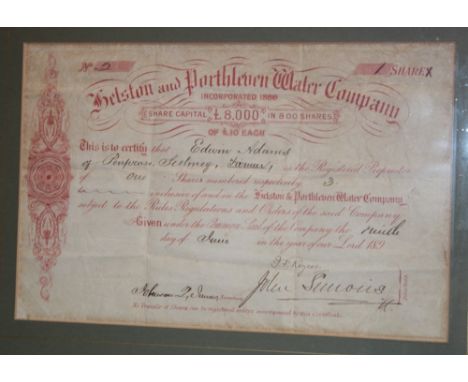 No 2
1 SHARE
Helston and Porthleven Water Company
INCORPORATED 188
SHARE CAPITAL £8,000 IN 800 SHARES
OF £10 EACH
This is to certify that Edwin Adams
of Sithney, Farmer, is the Registered Proprietor
of one Shares numbered respectively 3
inclusive of and in the Helston & Porthleven Water Company
subject to the Rules Regulations and Orders of the said Company
Given under the Common Seal of the Company the ninth
day of June in the year of our Lord 189
John
Secretary
No Transfer of Shares can be registered unless accompanied by this Certificate.